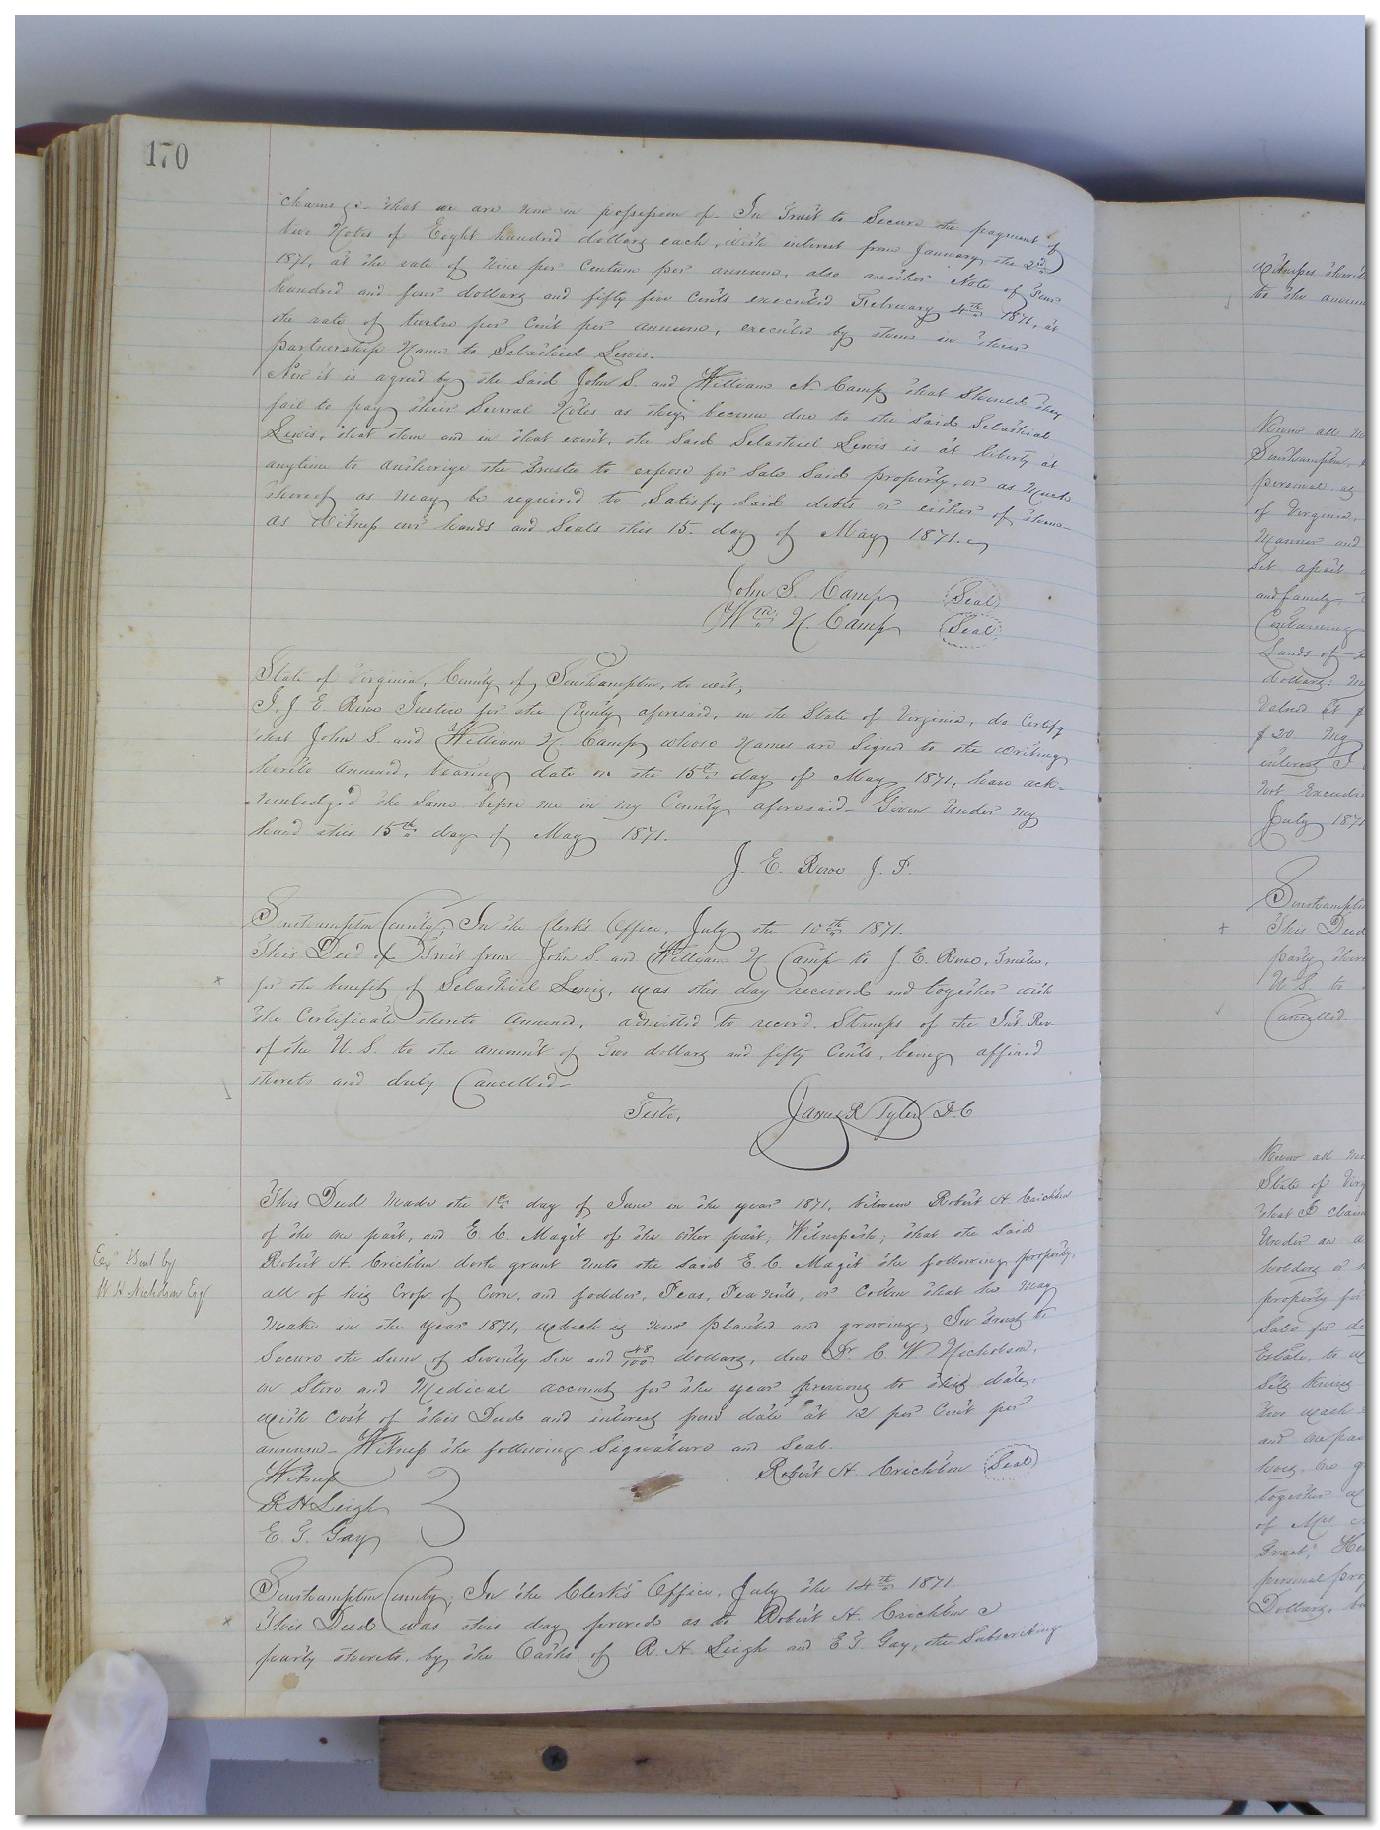 170
chains &c. that we are now in possession of. In Trust to Secure the payment of
two Notes of Eight hundred dollars each, with interest from January the 2nd
1871, at the rate of Nine per Centum per annum, also another Note of Four
hundred and four dollars and fifty five Cents executed February 4th 1871, at
the rate of twelve per Cent per annum, executed by them in their
partnership Name to Selastiel Lewis.
Now it is agreed by the Said John S. and William N. Camp that Should they
fail to pay their Several Notes as they become due to the said Selastiel
Lewis, that then and in that event, the Said Selastiel Lewis is at liberty at
anytime to authorize the Trustee to expose for Sale Said property, or as Much
thereof as may be required to Satisfy Said debts or either of them—
as Witness our hands and Seals this 15. day of May 1871.
John S. Camp Seal
Wm. N. Camp Seal
State of Virginia, County of Southampton, to wit,
I, J. E. Rowe Justice for the County aforesaid, in the State of Virginia, do Certify
that John S. and William N. Camp whose Names are Signed to the writing
hereto annexed, bearing date on the 15th day of May 1871, have ack-
nowledged the Same before me in my County aforesaid— Given Under my
hand this 15th day of May 1871.
J. E. Rowe J. P.
Southampton County; In the Clerk's Office, July the 10th 1871.
This Deed of Trust from John S. and William N Camp to J. E. Rowe, Trustee,
x
for the benefit of Selastiel Lewis, was this day received and together with
the Certificate thereto annexed, admitted to record. Stamps of the Int. Rev
of the U. S. to the amount of Two dollars and fifty Cents, being affixed
thereto and duly Cancelled—
Teste, James R Tyler D. C
This Deed Made the 1st day of June in the year 1871, between Robert H. Crichton
of the one part, and E. C. Magit of the other part, Witnesseth; that the Said
Robert H. Crichton doth grant unto the said E. C. Magit the following property,
all of his Crop of Corn, and fodder, Peas, Pea Nuts, or Cotton that he may
Make in the year 1871, which is now planted and growing, In Trust to
Secure the Sum of Seventy Six and 48/100 dollars, due Dr. C. W Nicholson,
on Store and Medical account for the year previous to this date,
with Cost of this Deed and interest from date at 12 per Cent per
annum— Witness the following Signature and Seal.
Ex & Sent by
W. H Nicholson Esq
Robert H. Crichton Seal
Witness
R H Leigh
E. T. Gay
Southampton County; In the Clerk's Office, July the 14th 1871.
x
This Deed was this day proved as to Robert H. Crichton a
party thereto, by the Oaths of R. H. Leigh and E T. Gay, the Subscribing
Witnesses
to the
Know all
Southampton
personal
of Virginia,
Manner and
Set apart
and family,
Containing
Lands of
dollars;
Valued at
$20.
interest
Not
July 1871
Southampton
+
This Deed
party
U S. to
Cancelled.
Know all
State of
that I claim
Under
holding
property for
Sale for
Estate, to
two
and
together
of
personal
Dollars,